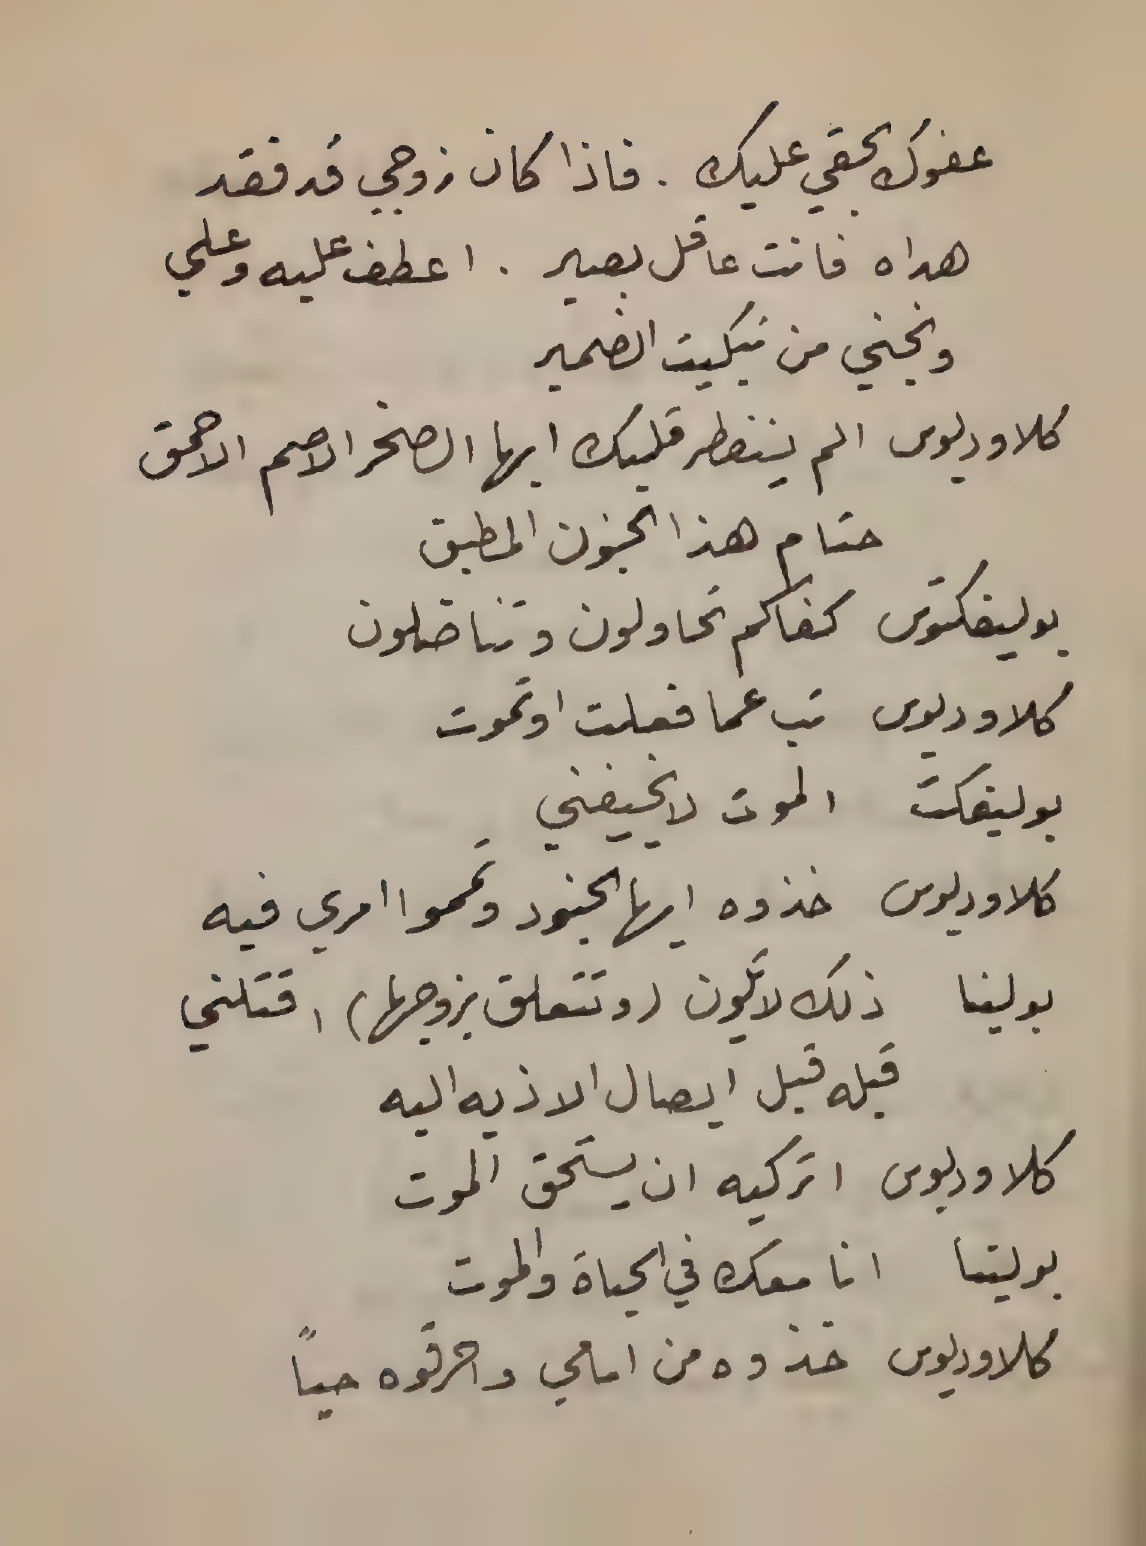 عفوك بحقي عليك . فاذا كان زوجي قد فقد
هداه فانت عاقل بصير . اعطف عليه وعلي
ونجني من تبكيت الضمير
كلاوديوس الم ينفطر قلبك ايها الصخر الاصم الاحمق
حتام هذا الجنون المطبق
بوليفكتوس كفاكم تحاولون وتناضلون
كلاوديوس تب عما فعلت او تموت
بوليفكت الموت لا يخيفني
كلاوديوس خذوه ايها الجنود وتمموا امري فيه
بولينا ذلك لا يكون (وتتعلق بزوجها) اقتلني
قبله قبل ايصال الاذيه اليه
كلاوديوس اتركيه ان يستحق الموت
بولينا انا معك في الحياة والموت
كلاوديوس خذوه من امامي واحرقوه حياً